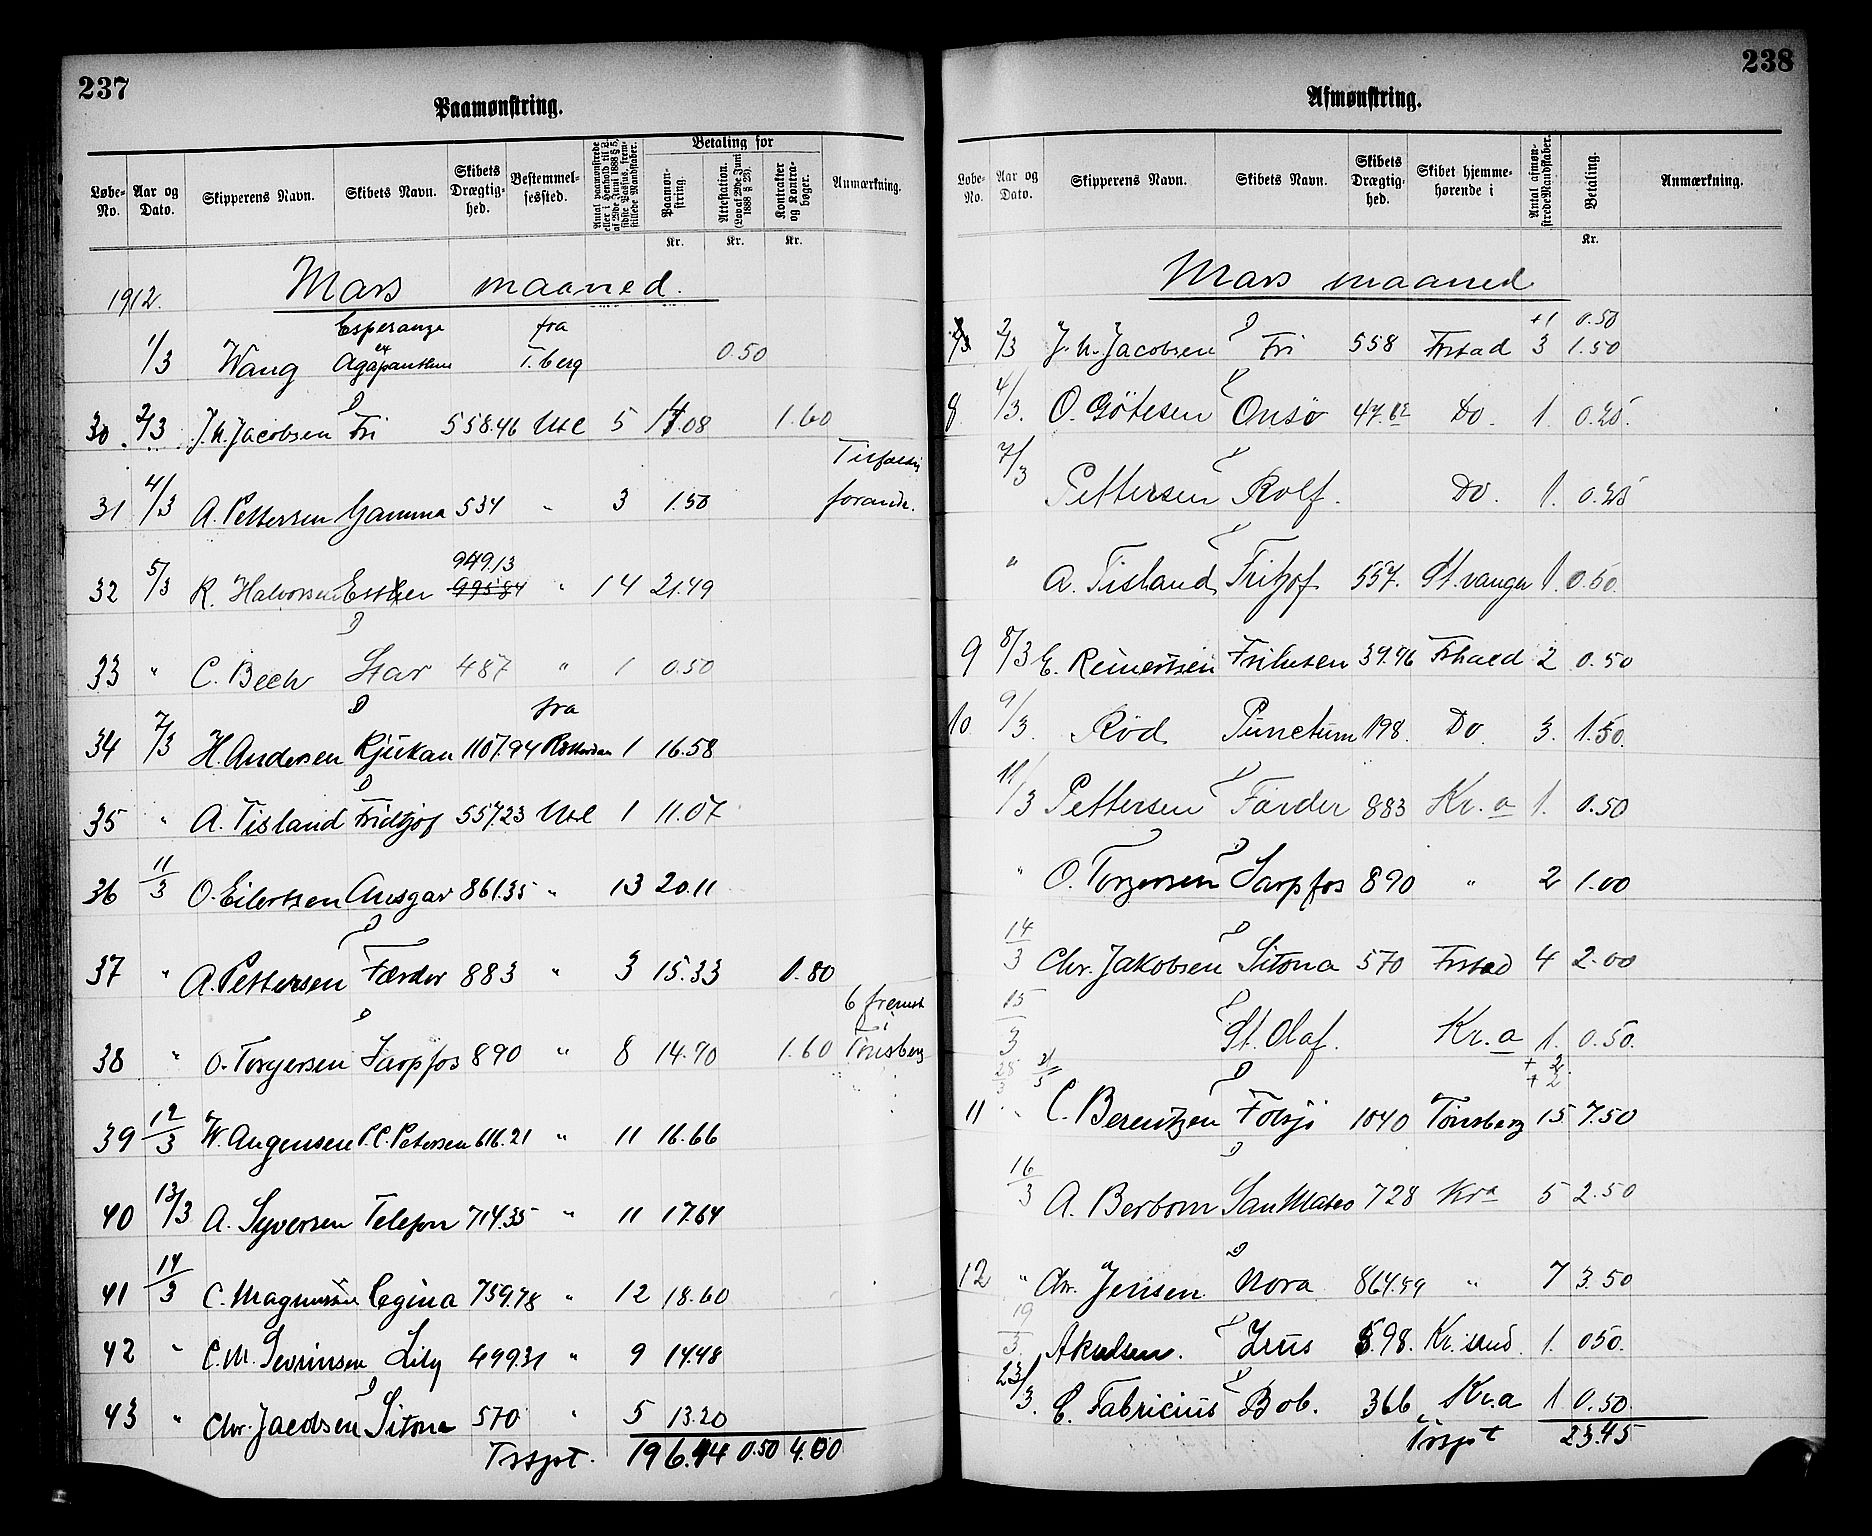 237
Paamønstring.
Løbe-No. Aar og Dato. Skipperens Navn. Skibets Navn. Skibets Drægtighed. Bestemmelsessted. Antal paamønstrede eller i Henhold til L. af 29de Juni 1888 § 5, sidste Passus, fremstillede Mandskaber. Betaling for Paamønstring. Attestation. (Lov af 29de Juni 1888 § 23). Kontrakter og Kontrabøger. Anmærkning.
Kr. Kr. Kr.
1912. Mars maaned.
1/3 Wang Esperanze ex Agapanthus fra T.berg 0.50
30 2/3 J. N. Jacobsen D Fri 558.46 Utl 5 11.08 1.60
31 4/3 A. Pettersen Gamma 534 " 3 1.50 forandr.
32 5/3 R. Halvorsen Esther 949.13 995.84 " 14 21.49
33 " C. Bech D Star 487 " 1 0.50
34 7/3 H. Andersen D Rjukan 1107.94 fra Rotterdam 1 16.58
35 " A. Tisland D Fridtjof 557.23 Utl 1 11.07
36 11/3 O. Eilertsen Ansgar 861.35 " 13 20.11
37 " A. Pettersen D Færder 883 " 3 15.33 1.80
38 " O. Torgersen D Sarpfos 890 " 8 14.70 1.60 6 fremst i Tønsberg
39 12/3 W. Augensen P. C. Petersen 616.21 " 11 16.66
40 13/3 A. Syversen Telefon 714.35 " 11 17.64
41 14/3 C. Magnussen Regina 759.78 " 12 18.60
42 " C. M. Sevrinsen Lily 499.31 " 9 14.48
43 " Chr. Jacobsen D Sitona 570 " 5 13.20
Trspt. 196.94 0.50 4.00
238
Afmønstring.
Løbe-No. Aar og Dato. Skipperens Navn. Skibets Navn. Skibets Drægtighed. Skibet hjemmehørende i Antal afmønstrede Mandskaber. Betaling. Anmærkning.
Kr.
Mars maaned
2/3 J. N. Jacobsen D Fri 558 Frstad +1 3 0.50 1.50
8 4/3. O. Götesen D Onsø 47.62 Do. 1. 0.25.
7/3 Pettersen D Rolf. Do. 1. 0.25
" A. Tisland D Fritjof 557. St.vanger 1. 0.50.
9 8/3 E. Reinertsen Frihesen 39.96 Frhald 2 0.50
10 9/3. Rød Punctum 198. Do 3. 1.50.
11/3 Pettersen D Færder 883 Kr.a 1. 0.50
" O. Torgersen D Sarpfos 890 " 2 1.00
14/3 Chr. Jakobsen D Sitona 570 Frstad 4 2.00
15/3 D St. Olaf. Kr.a 1. 0.50.
11 C. Berentzen D Folsjø 1040 Tønsberg + 2 + 2 15 7.50
16/3 A. Berbom D San Mateo 728 Kra 5 2.50
12 " Chr. Jensen D Nora 864.59 " 7 3.50
19/3. Akselsen. D Zeus 598. Kr.sund. 1. 0.50.
23/3. C. Fabricius D Bob. 366 Kr.a 1 0.50
Trspt 23.45